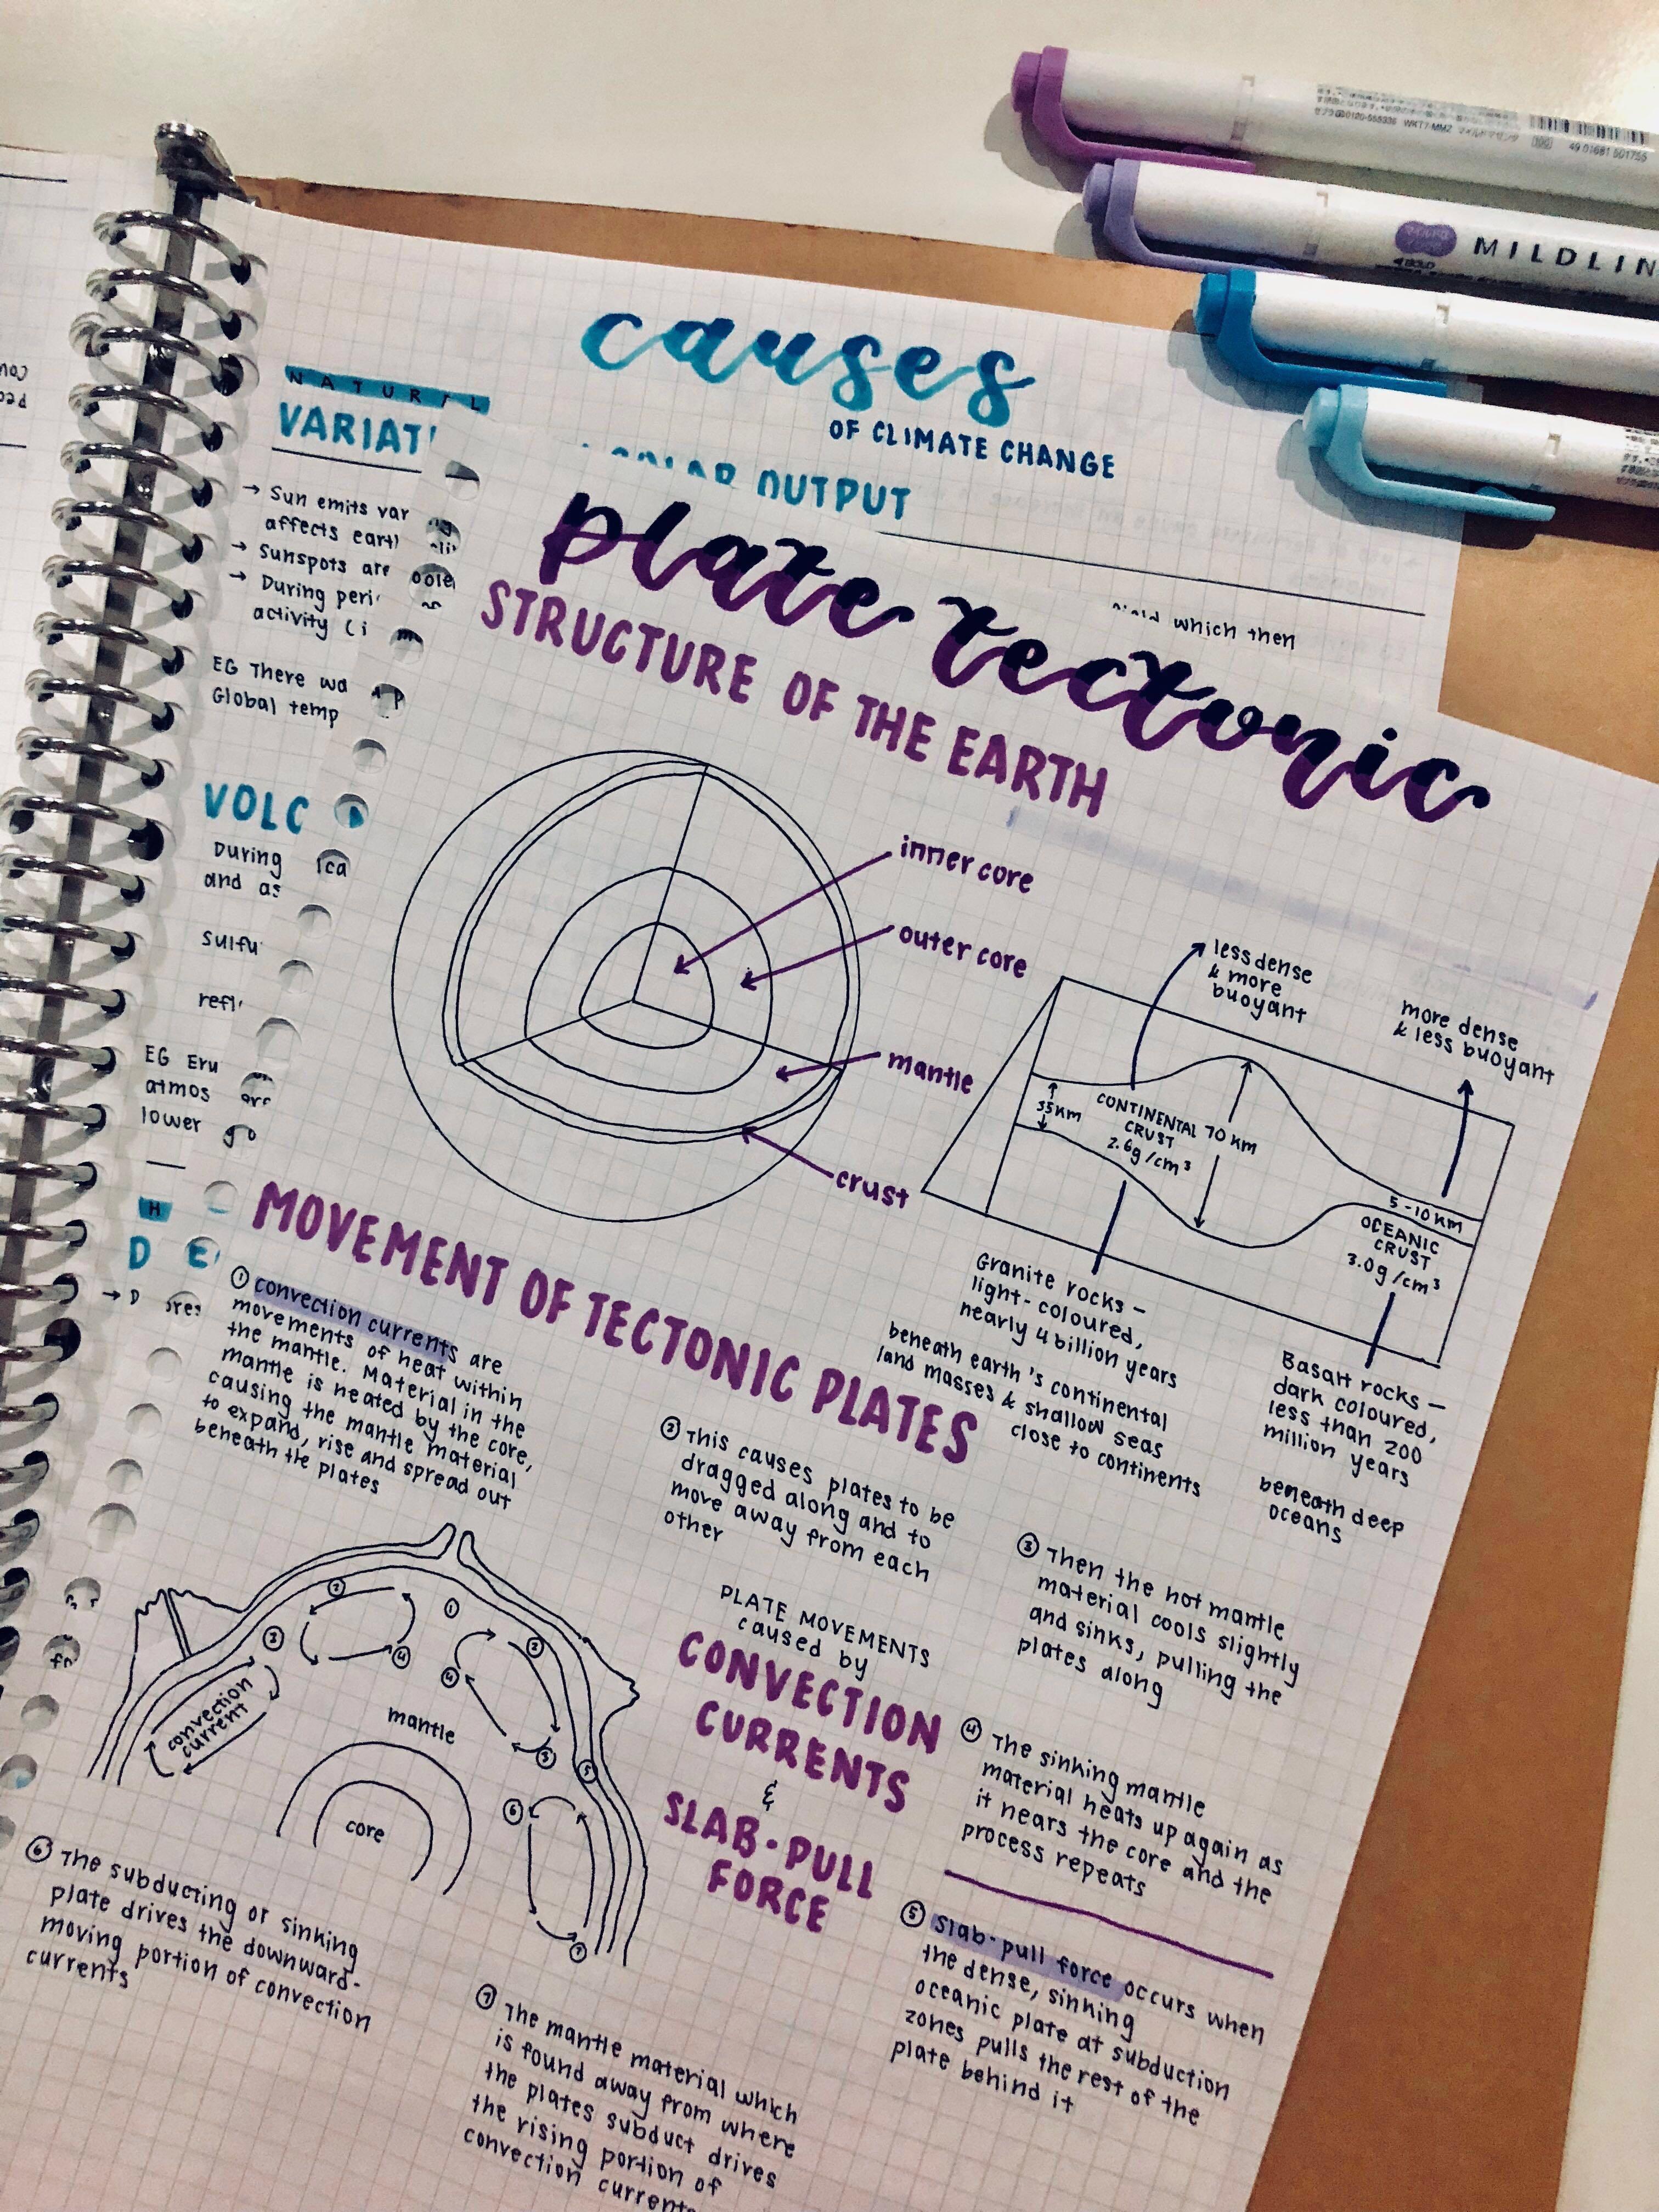 causes
OF CLIMATE CHANGE
NATURAL
OUTPUT
→ Sun emits
affects
→ Sunspots are
→ During
activity
EG There
Global temp
During
and
EG
lower
which then
plate tectonic
STRUCTURE OF THE EARTH
inner core
outer core
mantle
crust
less dense
& more
buoyant
more dense
& less buoyant
35km
CONTINENTAL
CRUST
2.6g/cm³
70 km
5-10 km
OCEANIC
CRUST
3.0g/cm³
Granite rocks –
light-coloured,
nearly 4 billion years
beneath earth's continental
land masses & shallow seas
close to continents
Basalt rocks –
dark coloured,
less than 200
million years
beneath deep
oceans
MOVEMENT OF TECTONIC PLATES
① convection currents are
movements of heat within
the mantle. Material in the
mantle is heated by the core,
causing the mantle material
to expand, rise and spread out
beneath the plates
② This causes plates to be
dragged along and to
move away from each
other
③ Then the hot mantle
material cools slightly
and sinks, pulling the
plates along
PLATE MOVEMENTS
caused by
CONVECTION
CURRENTS
&
SLAB-PULL
FORCE
④ The sinking mantle
material heats up again as
it nears the core and the
process repeats
⑤ Slab-pull force occurs when
the dense, sinking
oceanic plate at subduction
zones pulls the rest of the
plate behind it
② ① ③ ④ ② ④ ③ ⑤ ⑥ ⑦
convection
current
mantle
core
⑥ The subducting or sinking
plate drives the downward-
moving portion of convection
currents
⑦ The mantle material which
is found away from where
the plates subduct drives
the rising portion of
convection currents
MILDLIN